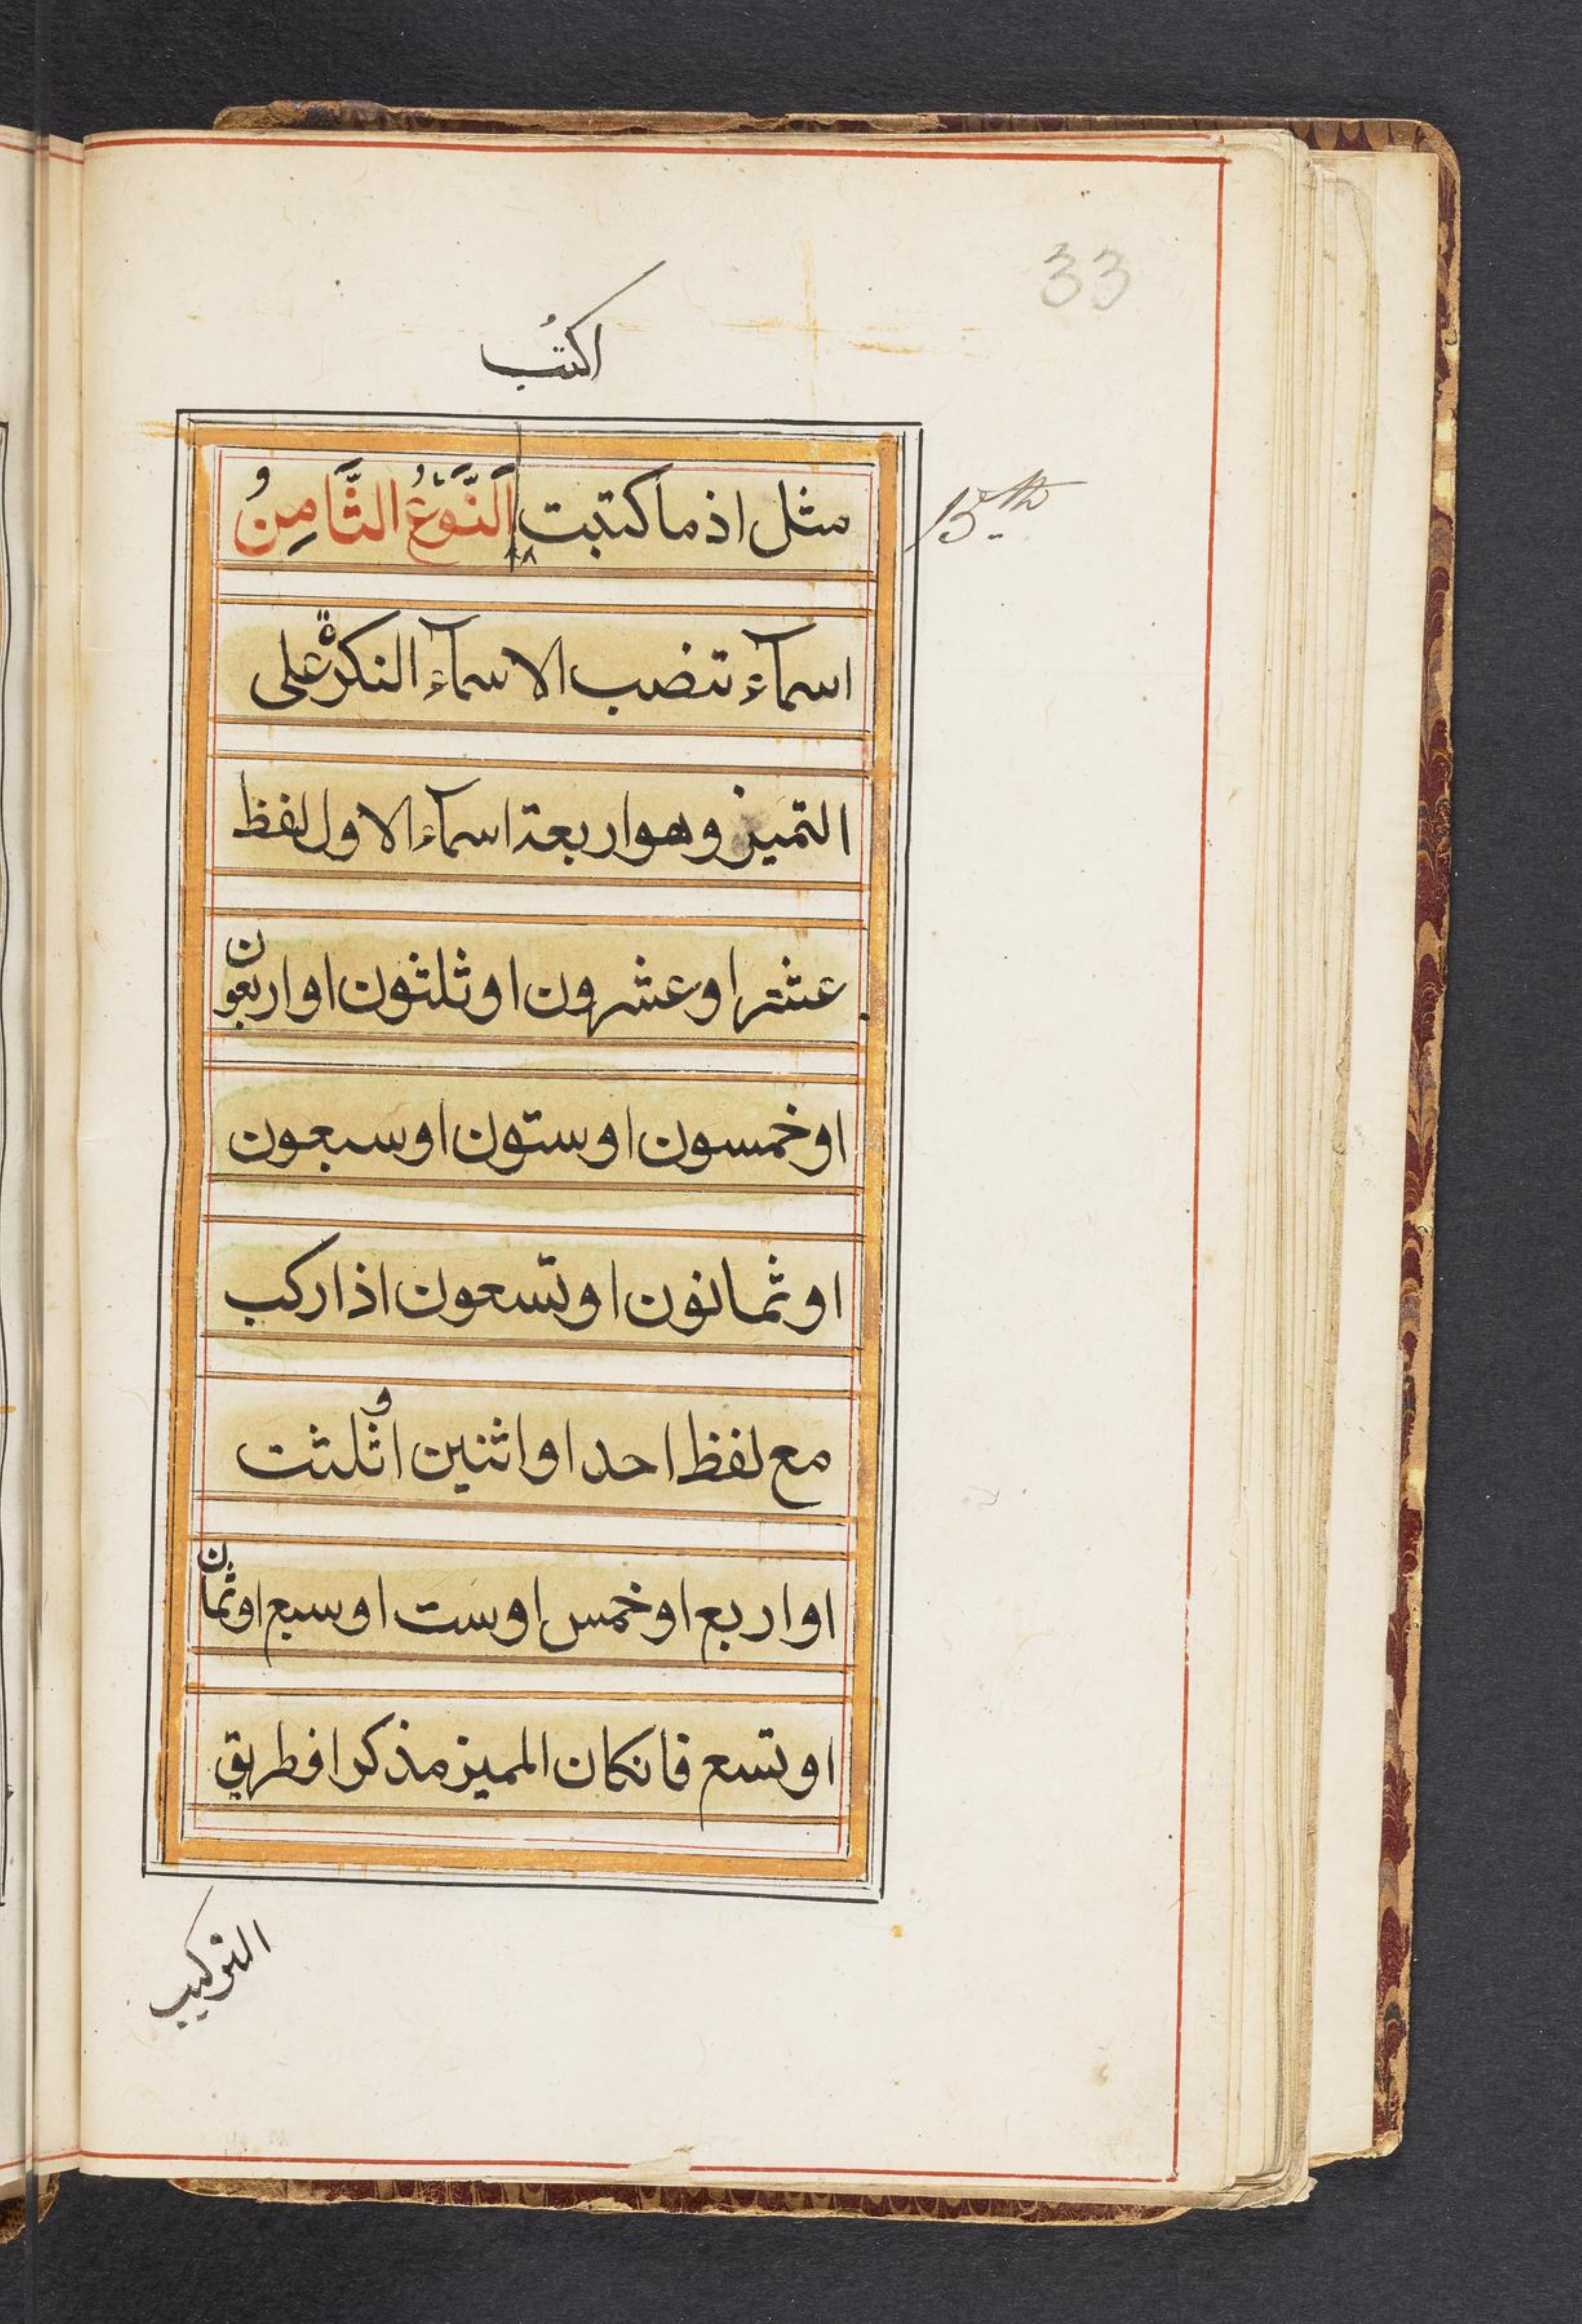 33
اكتُب
مثل اذ ما كتبت اَلنَّوْعُ الثَّامِنُ و
15th
اسمآء تنضب الاسمآء النكرة على
التميز وهو اربعة اسمآء الاول لفظ
عشر او عشرون او ثلثون او اربعون
او خمسون او ستون او سبعون
او ثمانون او تسعون اذا ركب
مع لفظ احد او اثنين او ثلثت
او اربع او خمس او ست او سبع او ثمان
او تسع فانكان المميز مذكرا فطريق
التركيب